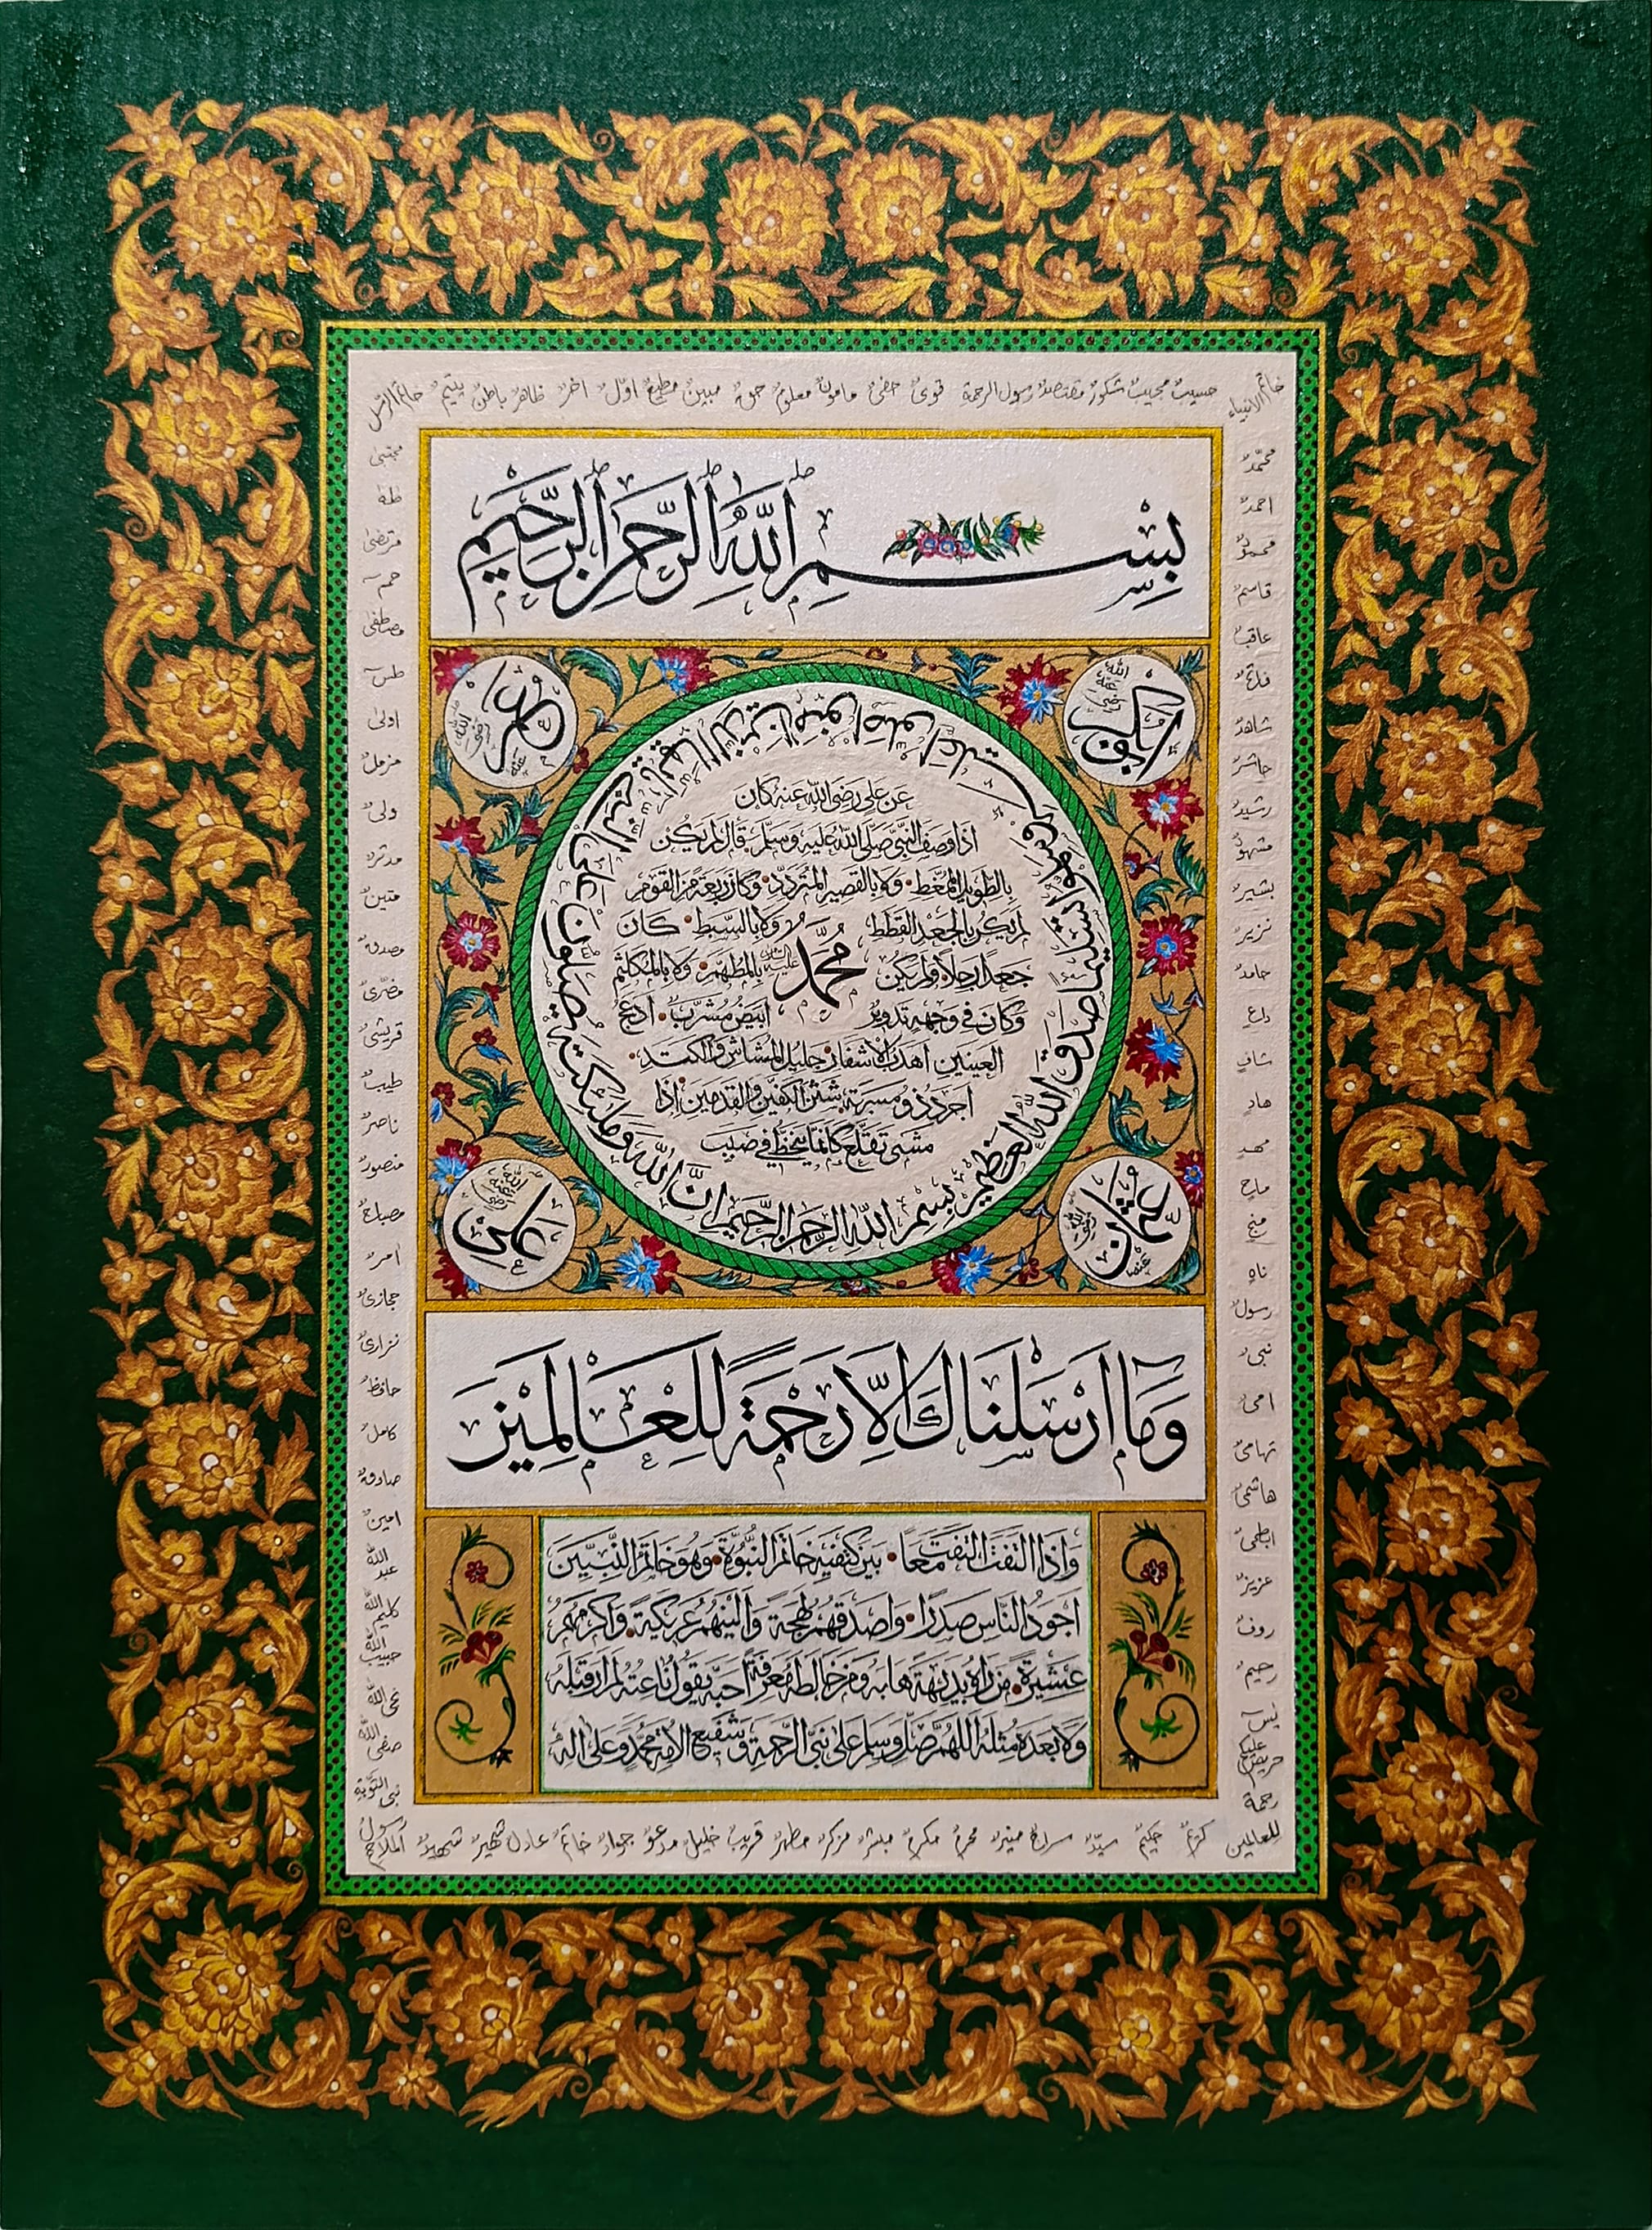 خاتم الانبياء حسيبٌ مجيبٌ شكورٌ مقتصدٌ رسول الرحمة قوىٌ حفىٌ مامونٌ معلومٌ حقٌ مبينٌ مطيعٌ اولٌ اخرٌ ظاهرٌ باطنٌ يتيمٌ خاتم الرسل
بِسْمِ اللّٰهِ الرَّحْمٰنِ الرَّحِيْمِ
محمّدٌ
احمدٌ
محمودٌ
قاسمٌ
عاقبٌ
شاهدٌ
حاشرٌ
رشيدٌ
مشهودٌ
بشيرٌ
نزيرٌ
حامدٌ
داعٍ
شافٍ
هادٍ
مهدٍ
ماحٍ
منجٍ
ناهٍ
رسولٌ
نبىٌ
امىٌ
تهامىٌ
هاشمىٌ
ابطحىٌ
عزيزٌ
روفٌ
رحيمٌ
يٰسٓ
حريص عليكم
رحمة
للعالمين
ابوبكر رضى الله عنه
عمر رضى الله عنه
بسم الله الرحمن الرحيم ان الله وملٰئكته يصلون على النبى يايها الذين اٰمنوا صلوا عليه وسلموا تسليما صدق الله العظيم
عن على رضى الله عنه كان
اذا وصف النبى صلى الله عليه وسلم قال لم يكن
بالطويل الممغط ولا بالقصير المتردد وكان ربعة من القوم
لم يكن بالجعد القطط ولا بالسبط كان
جعدا رجلا ولم يكن محمد عليه السلام بالمطهم ولا بالمكلثم
وكان فى وجهه تدوير ابيض مشرب ادعج
العينين اهدب الاشفار جليل المشاش والكتد
اجرد ذو مسربة شثن الكفين والقدمين اذا
مشى تقلع كانما ينحط فى صبب
عثمان رضى الله عنه
على رضى الله عنه
وَمَا اَرْسَلْنَاكَ اِلَّا رَحْمَةً لِلْعَالَمِيْنَ
واذا التفت التفت معا بين كتفيه خاتم النبوة وهو خاتم النبيين
اجود الناس صدرا واصدقهم لهجة والينهم عريكة واكرمهم
عشيرة من راه بديهة هابه ومن خالطه معرفة احبه يقول ناعته لم ار قبله
ولا بعده مثله اللهم صل وسلم على نبى الرحمة وشفيع الامة محمد وعلى اله
مجتبى
طٰهٰ
مرتضى
حمٓ
مصطفى
طسٓ
اولى
مزملٌ
ولىٌ
مدثرٌ
متينٌ
مصدقٌ
مضرىٌ
قريشىٌ
طيبٌ
ناصرٌ
منصورٌ
مصباحٌ
امرٌ
حجازىٌ
نزارىٌ
حافظٌ
كاملٌ
صادقٌ
امينٌ
عبد الله
كليم الله
حبيب الله
نجى الله
صفى الله
نبى التوبة
كريمٌ حكيمٌ سيّدٌ سراجٌ منيرٌ محرمٌ مكرمٌ مبشرٌ مزكرٌ مطهرٌ قريبٌ خليلٌ مدعوٌ جوادٌ خاتمٌ عادلٌ شهيرٌ شهيدٌ رسول الملاحم